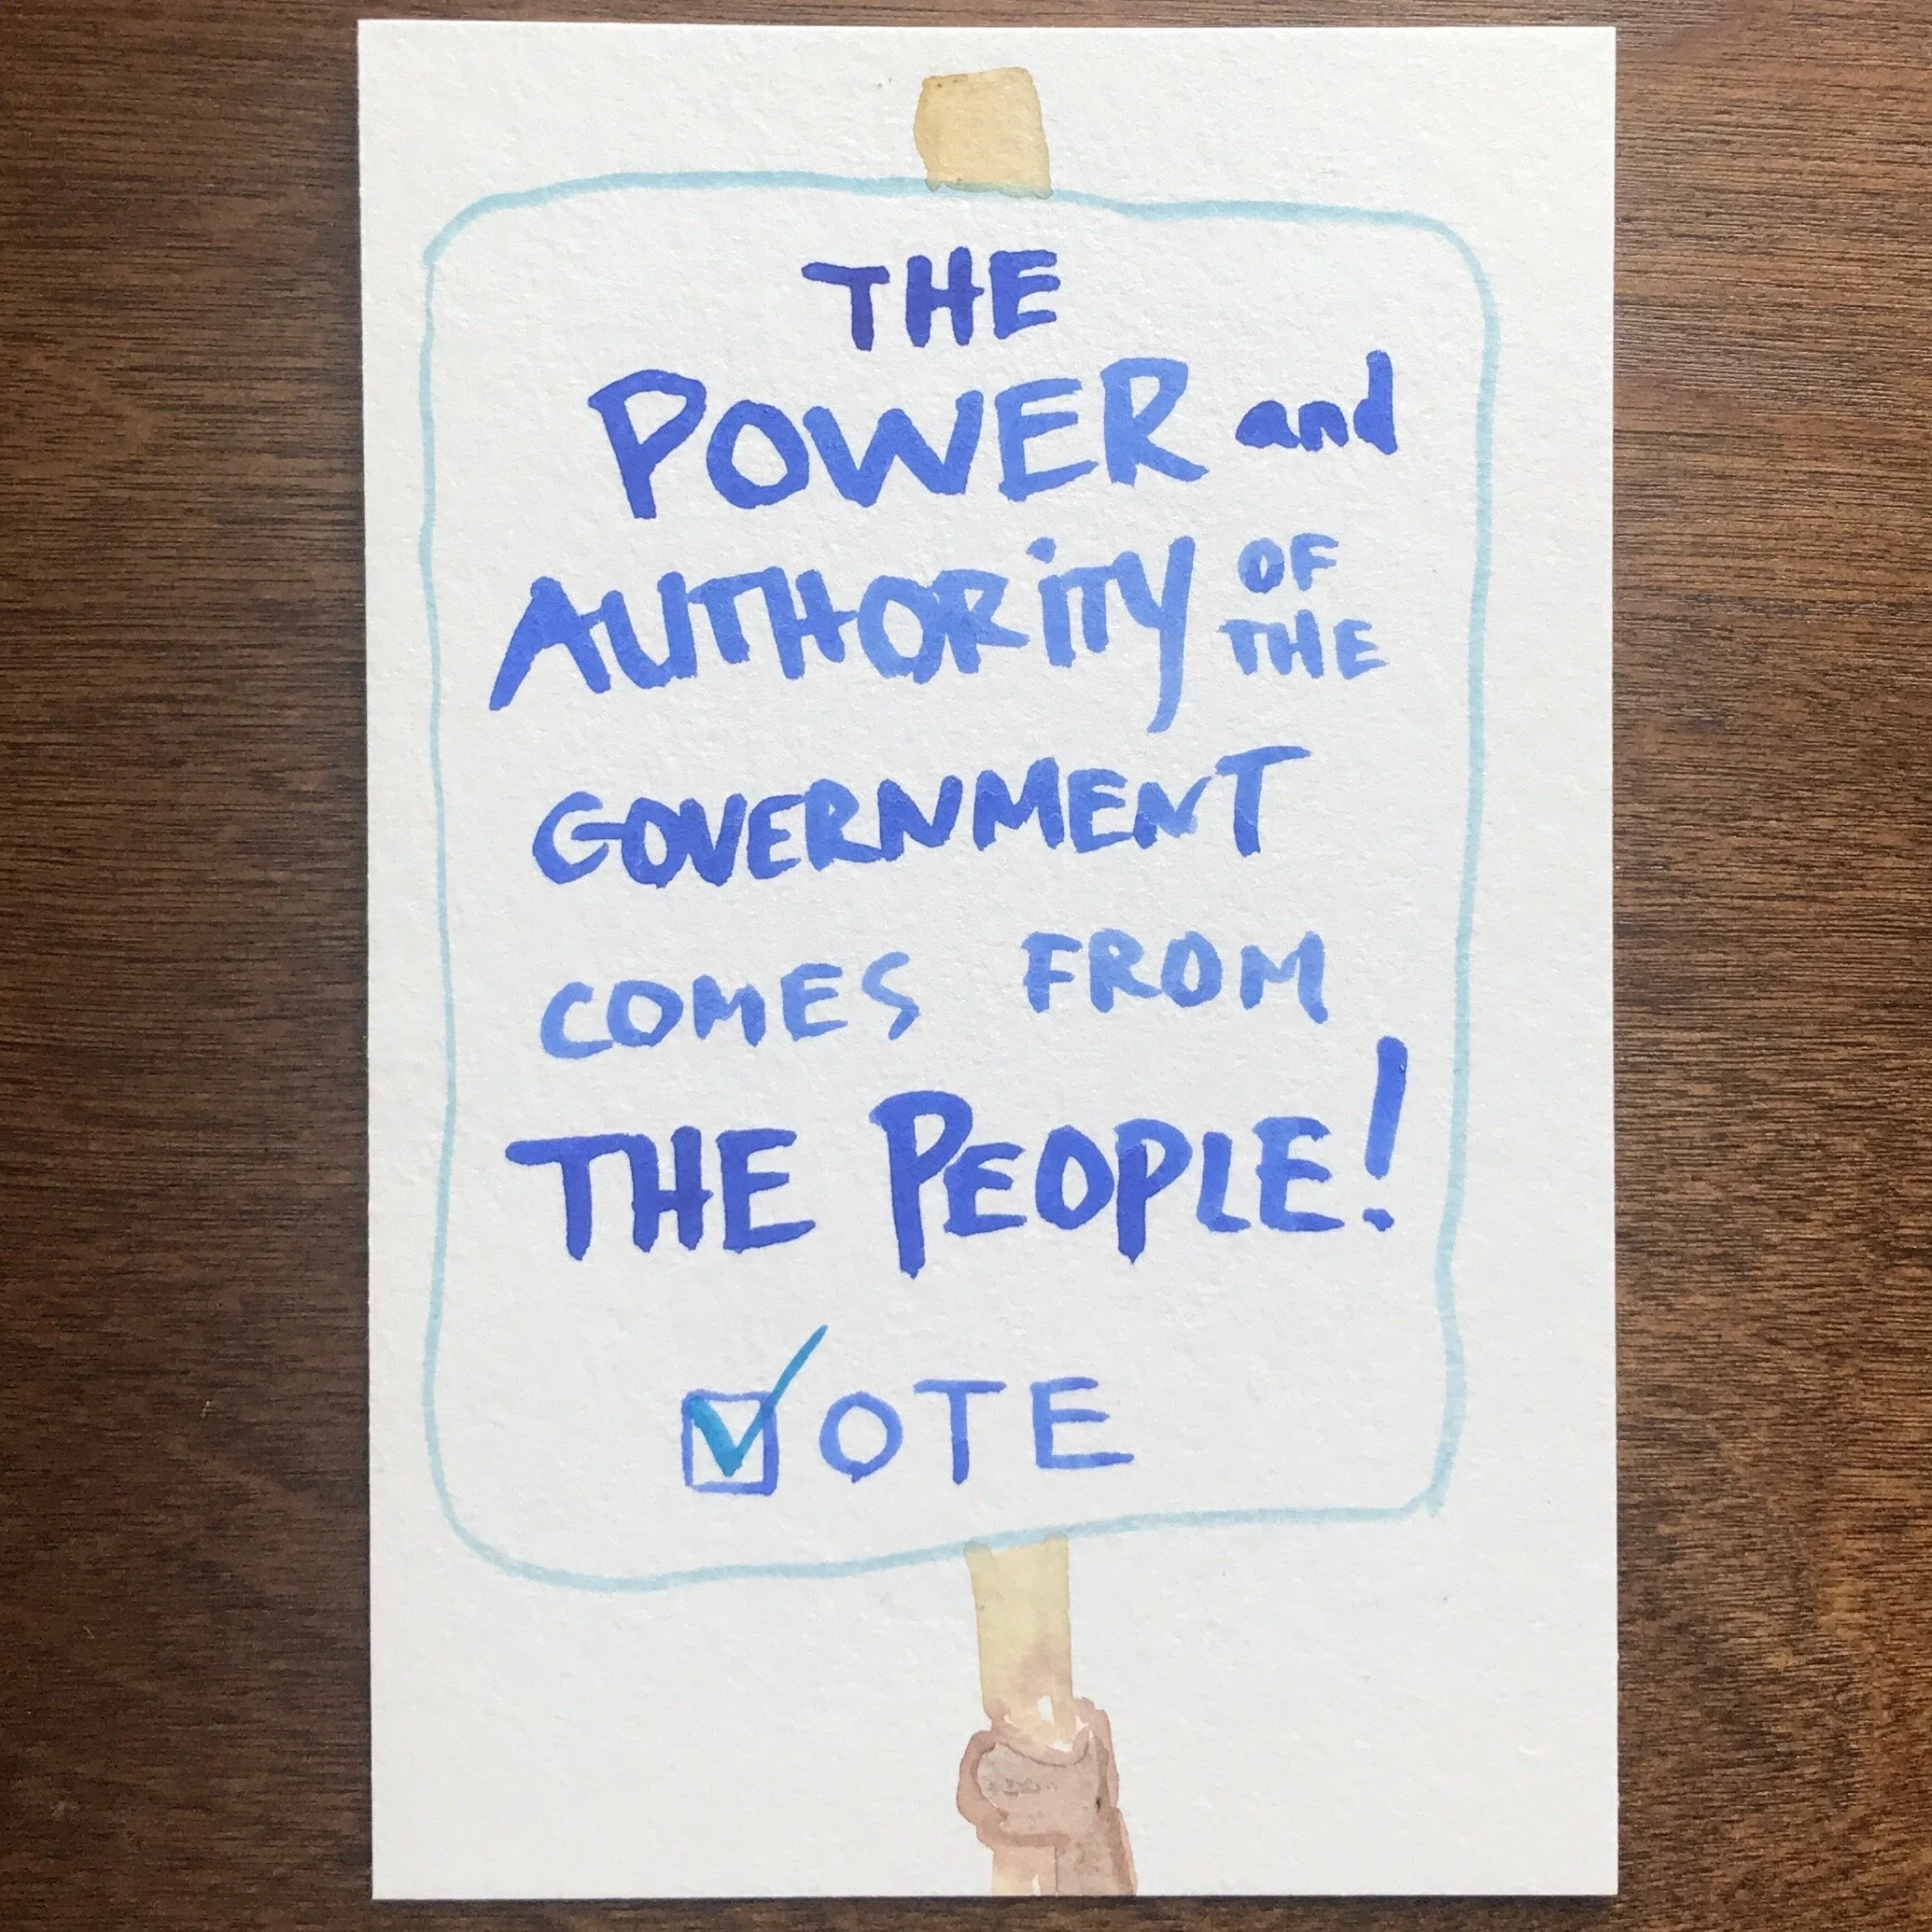 THE
POWER and
AUTHORiTY OF
THE
GOVERNMENT
COMES FROM
THE PEOPLE!
VOTE